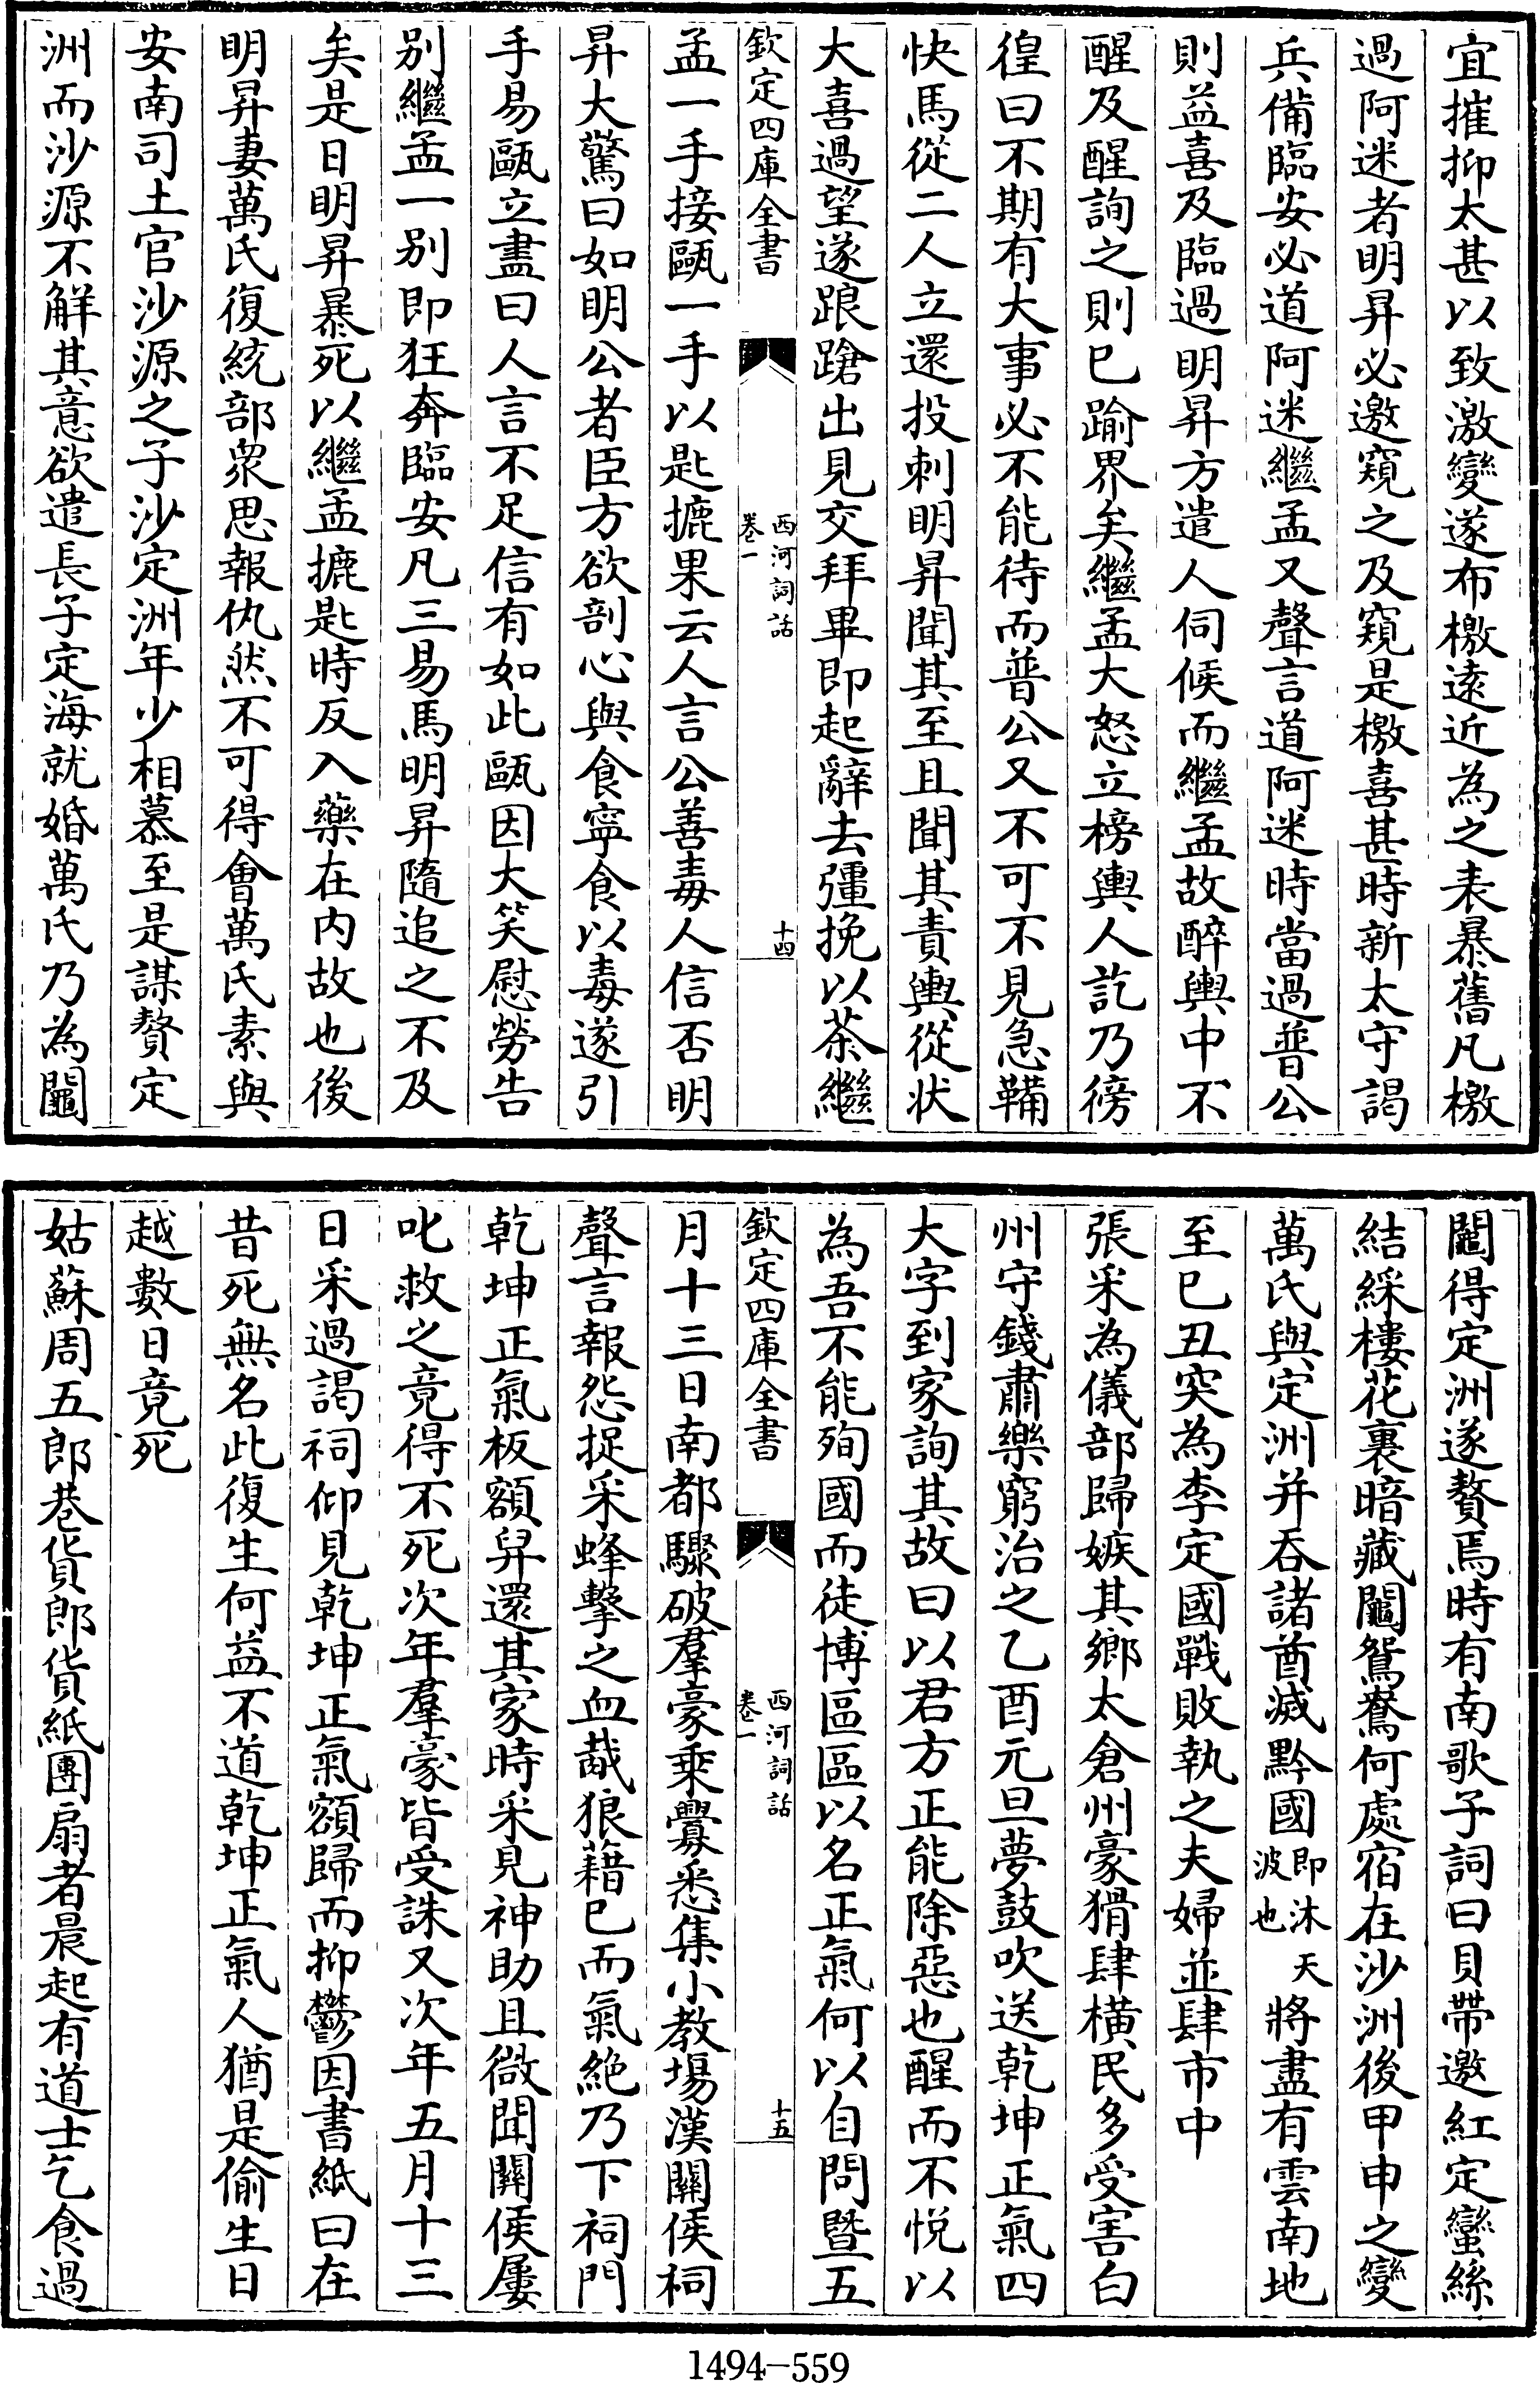 宜摧抑太甚以致激變遂布檄遠近為之表暴舊凡檄
過阿迷者明昇必邀窺之及窺是檄喜甚時新太守謁
兵備臨安必道阿迷繼孟又聲言道阿迷時當過普公
則益喜及臨過明昇方遣人伺候而繼孟故醉輿中不
醒及醒詢之則已踰界矣繼孟大怒立榜輿人訖乃徬
徨曰不期有大事必不能待而普公又不可不見急鞴
快馬從二人立還投刺明昇聞其至且聞其責輿從状
大喜過望遂踉蹌出見交拜畢即起辭去彊挽以茶繼
欽定四庫全書
西河詞話
卷一
十四
孟一手接甌一手以匙摝果云人言公善毒人信否明
昇大驚曰如明公者臣方欲剖心與食寜食以毒遂引
手易甌立盡曰人言不足信有如此甌因大笑慰勞告
别繼孟一别即狂奔臨安凡三易馬明昇隨追之不及
矣是日明昇暴死以繼孟摝匙時反入藥在内故也後
明昇妻萬氏復統部衆思報仇然不可得會萬氏素與
安南司土官沙源之子沙定洲年少相慕至是謀贅定
洲而沙源不解其意欲遣長子定海就婚萬氏乃為鬮
鬮得定洲遂贅焉時有南歌子詞曰貝帶邀紅定蠻絲
結綵樓花裏暗藏鬮鴛鴦何處宿在沙洲後甲申之變
萬氏與定洲并吞諸酋滅黔國即沐天波也將盡有雲南地
至己丑突為李定國戰敗執之夫婦並肆市中
張采為儀部歸嫉其鄉太倉州豪猾肆横民多受害白
州守錢肅樂窮治之乙酉元旦夢鼓吹送乾坤正氣四
大字到家詢其故曰以君方正能除惡也醒而不悦以
為吾不能殉國而徒博區區以名正氣何以自問暨五
欽定四庫全書
西河詞話
卷一
十五
月十三日南都驟破羣豪乘釁悉集小教場漢關侯祠
聲言報怨捉采蜂擊之血胾狼藉已而氣絶乃下祠門
乾坤正氣板額舁還其家時采見神助且微聞關侯屢
叱救之竟得不死次年羣豪皆受誅又次年五月十三
日采過謁祠仰見乾坤正氣額歸而抑鬱因書紙曰在
昔死無名此復生何益不道乾坤正氣人猶是偷生日
越數日竟死
姑蘇周五郎巷貨郎貨紙團扇者晨起有道士乞食過
1494—559